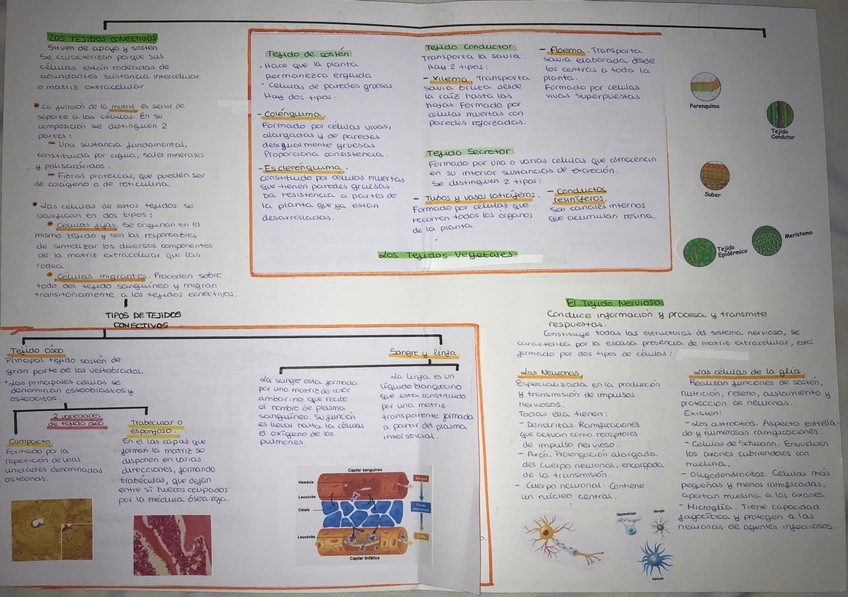 LOS TEJIDOS CONECTIVOS
Sirven de apoyo y sostén
Se caracterizan porque sus
células están rodeadas de
abundantes sustancia intercelular
o matriz extracelular
La función de la matriz es servir de
soporte a las células. En su
composición se distinguen 2
partes:
- Una sustancia fundamental,
constituida por agua, sales minerales
y polisacáridos.
- Fibras proteicas, que pueden ser
de colágeno o de reticulina.
Las células de estos tejidos se
clasifican en dos tipos:
Células fijas. Se originan en el
mismo tejido y son las responsables
de sintetizar los diversos componentes
de la matriz extracelular que las
rodea.
Células migrantes. Proceden sobre
todo del tejido sanguíneo y migran
transitoriamente a los tejidos conectivos.
TIPOS DE TEJIDOS
CONECTIVOS
Tejido de sostén
· Hace que la planta
permanezca erguida
· Células de paredes gruesas.
Hay dos tipos:
- Colénquima.
Formado por células vivas,
alargadas y de paredes
desigualmente gruesas
Proporciona consistencia.
- Esclerénquima.
Constituido por células muertas
que tienen paredes gruesas.
Da resistencia a partes de
la planta que ya están
desarrolladas.
Tejido Conductor
Transporta la savia.
Hay 2 tipos:
- Xilema. Transporta
savia bruta desde
la raíz hasta las
hojas. Formado por
células muertas con
paredes reforzadas.
- Floema. Transporta
savia elaborada desde
los centros a toda la
planta.
Formado por células
vivas superpuestas
Tejido Secretor
Formado por una o varias células que almacenan
en su interior sustancias de excreción.
Se distinguen 2 tipos:
- Tubos y vasos laticíferos.
Formado por células que
recorren todos los órganos
de la planta.
- Conductos
resiníferos.
Son canales internos
que acumulan resina.
Los Tejidos Vegetales
Parenquima
Tejido
Conductor
Suber
Tejido
Epidérmico
Meristemo
Tejido Óseo
Principal tejido sostén de
gran parte de los vertebrados.
· Las principales células se
denominan osteoblastos y
osteocitos.
2 variedades
de tejido óseo
Compacto.
Formado por la
repetición de unas
unidades denominadas
osteonas.
Trabecular o
esponjoso.
En el las capas que
forman la matriz se
disponen en varias
direcciones, formando
trabéculas, que dejan
entre sí huecos ocupados
por la médula ósea roja.
Sangre y linfa
La sangre esta formada
por una matriz de color
ambarino que recibe
el nombre de plasma
sanguíneo. Su función
es llevar hasta la células
el oxígeno de los
pulmones.
La linfa es un
líquido blanquecino
que esta constituido
por una matriz
transparente formada
a partir del plasma
intersticial.
Capilar sanguíneo
Hematíe
Leucocito
Célula
Leucocito
Capilar linfático
El Tejido Nervioso
Conduce información y procesa y transmite
respuestas.
Constituye todas las estructuras del sistema nervioso, se
caracteriza por la escasa presencia de matriz extracelular, está
formado por dos tipos de células:
Las Neuronas.
Especializada en la producción
y transmisión de impulsos
nerviosos.
Todas ella tienen:
- Dendritas. Ramificaciones
que actúan como receptores
de impulso nervioso.
- Axón. Prolongación alargada
del cuerpo neuronal, encargada
de la transmisión.
- Cuerpo neuronal. Contiene
un núcleo central.
Las células de la glía
Realizan funciones de sostén,
nutrición, relleno, aislamiento y
protección de neuronas.
Existen:
- Los astrocitos. Aspecto estrella-
do y numerosas ramificaciones
- Células de Schwann. Envuelven
los axones cubriendolos con
mielina.
- Oligodendrocitos. Células más
pequeñas y menos ramificadas,
aportan mielina a los axones.
- Microglía. Tiene capacidad
fagocítica y protegen a las
neuronas de agentes infecciosos.